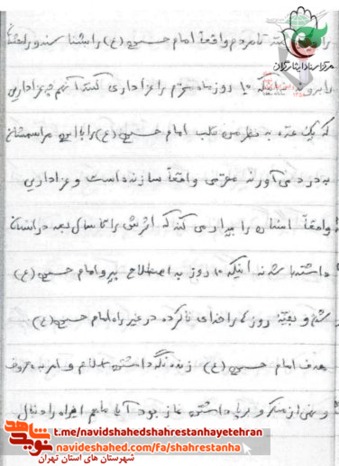 تا مردم واقعاً امام حسین (ع) را بشناسند و راهشان
۱۰ روز ماه محرم را عزاداری کنند آنهم چه عزاداری
که یک عده به نظر من قلب امام حسین (ع) را با این مراسمشان
به درد می‌آورند عزتی واقعاً سازنده است و عزاداری
واقعاً انسان را بیدار می کند که اثرش را تا سال بعد در انسان
داشته باشد نه اینکه ۱۰ روز به اصطلاح پیرو امام حسین (ع)
شد و بقیه روز را خدای نا کرده در غیر راه امام حسین (ع)
هدف امام حسین (ع) زنده نگه داشتن اسلام و امر به معروف
و نهی از منکر و برپا داشتن نماز بود آیا ما هم این راه را دنبال
مرکز اسناد ایثارگران
نوید شاهد
t.me/navidshahedshahrestanhayetehran
navideshahed.com/fa/shahrestanha
شهرستان های استان تهران